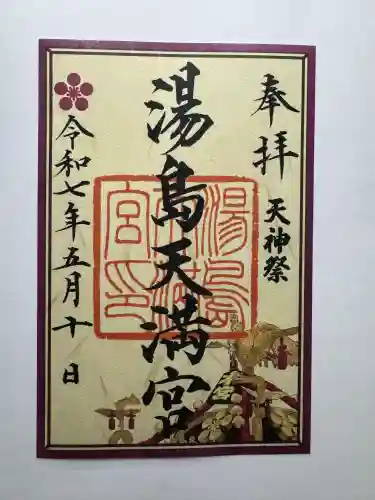 奉拝
天神祭
湯島天満宮
湯島天満宮印
令和七年五月十日